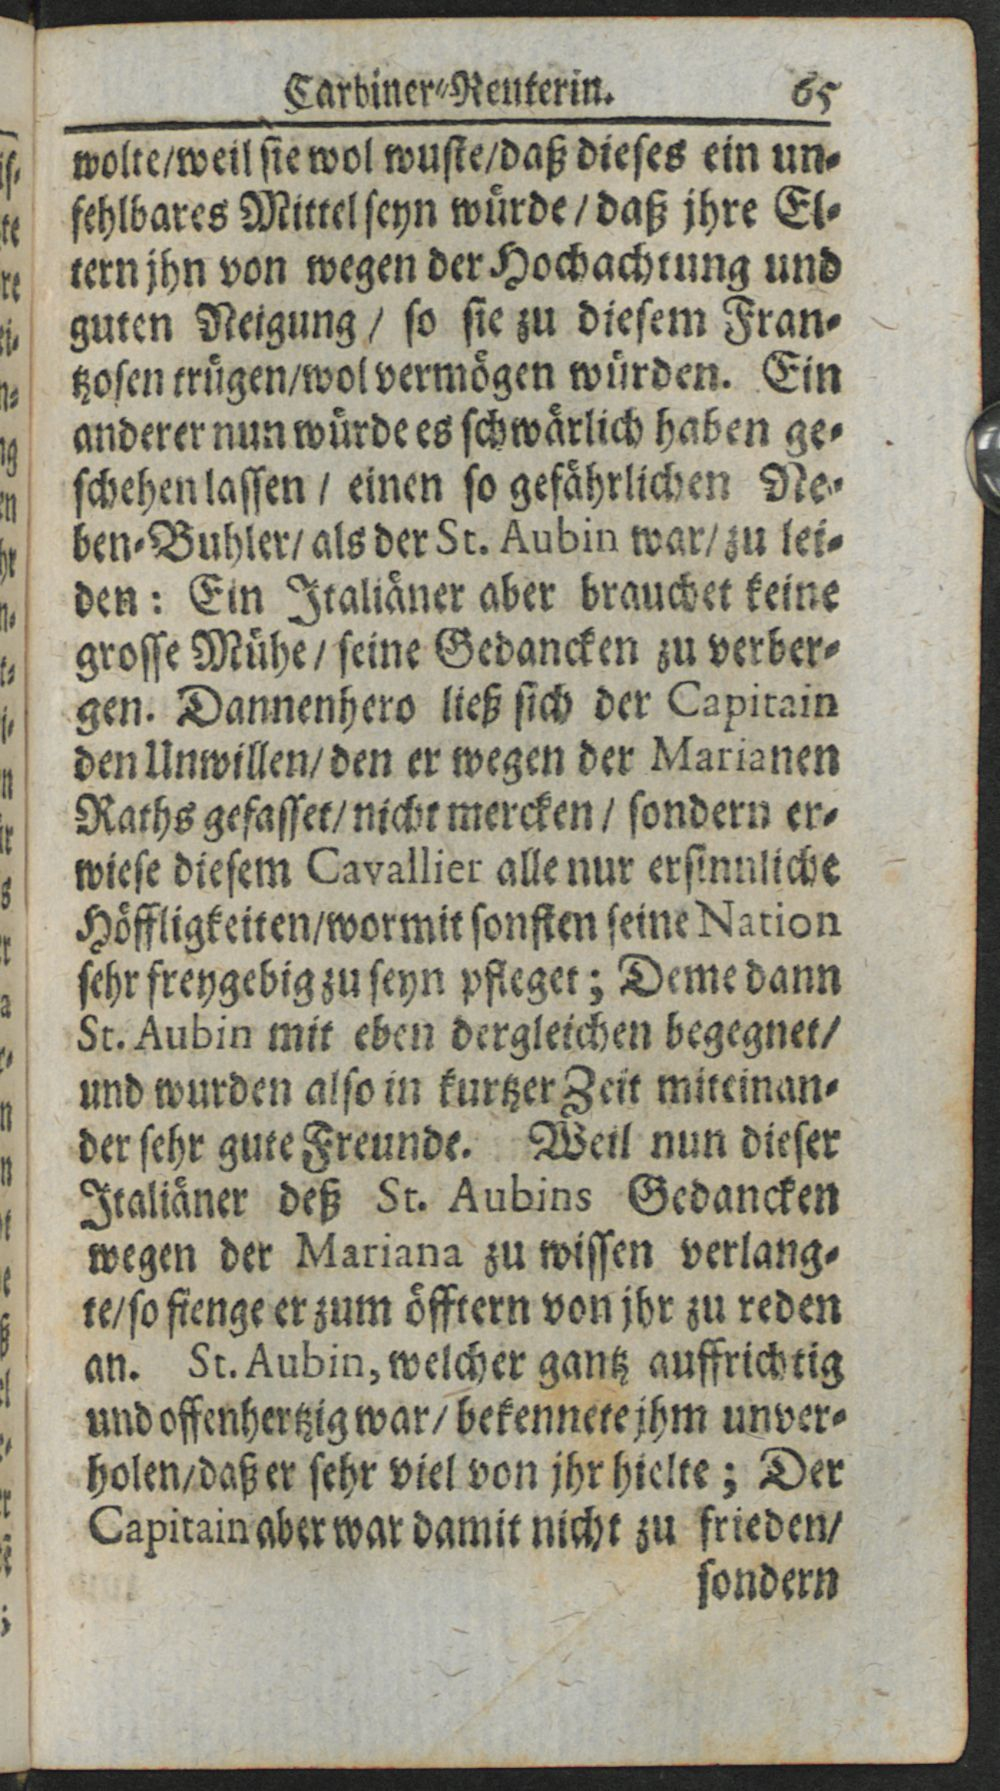 Carbiner-Reuterin. 65
wolte/weil sie wol wuste/daß dieses ein un-
fehlbares Mittel seyn würde / daß jhre El-
tern jhn von wegen der Hochachtung und
guten Neigung / so sie zu diesem Fran-
tzosen trügen/wol vermögen würden. Ein
anderer nun würde es schwärlich haben ge-
schehen lassen / einen so gefährlichen Ne-
ben-Buhler/ als der St. Aubin war/ zu lei-
den: Ein Italiäner aber brauchet keine
grosse Mühe / seine Gedancken zu verber-
gen. Dannenhero ließ sich der Capitain
den Unwillen/ den er wegen der Marianen
Raths gefasset/ nicht mercken / sondern er-
wiese diesem Cavallier alle nur ersinnliche
Höffligkeiten/wormit sonsten seine Nation
sehr freygebig zu seyn pfleget; Deme dann
St. Aubin mit eben dergleichen begegnet/
und wurden also in kurtzer Zeit miteinan-
der sehr gute Freunde. Weil nun dieser
Italiäner deß St. Aubins Gedancken
wegen der Mariana zu wissen verlang-
te/so fienge er zum öfftern von jhr zu reden
an. St. Aubin, welcher gantz auffrichtig
und offenhertzig war/ bekennete jhm unver-
holen/daß er sehr viel von jhr hielte; Der
Capitain aber war damit nicht zu frieden/
sondern